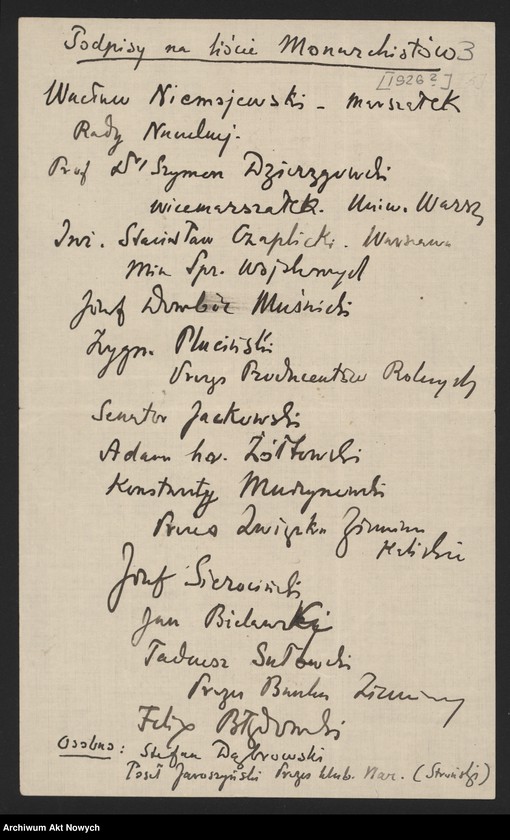 Podpisy na liście Monarchistów 3
[1926?]
Wacław Niemojewski - marszałek
Rady Naczelnej.
Prof Dr Szymon Dzierzgowski
wicemarszałek. Uniw. Warsz
Inż. Stanisław Czaplicki. Warszawa
Min Spr. Wojskowych
Józef Dowbór Muśnicki
Zygm. Pluciński
Prezes Producentów Rolnych
Senator Jackowski
Adam hr. Żółtowski
Konstanty
Prezes Związku Ziemian
Józef Sierociński
Jan Bielawski
Tadeusz Sułowski
Prezes Banku
Felix
Osobno: Stefan Dąbrowski
Poseł Jaroszyński Prezes klub. Nar. (Stroński)
Archiwum Akt Nowych